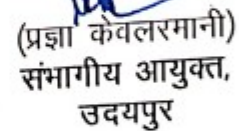 (प्रज्ञा केवलरमानी)
संभागीय आयुक्त,
उदयपुर